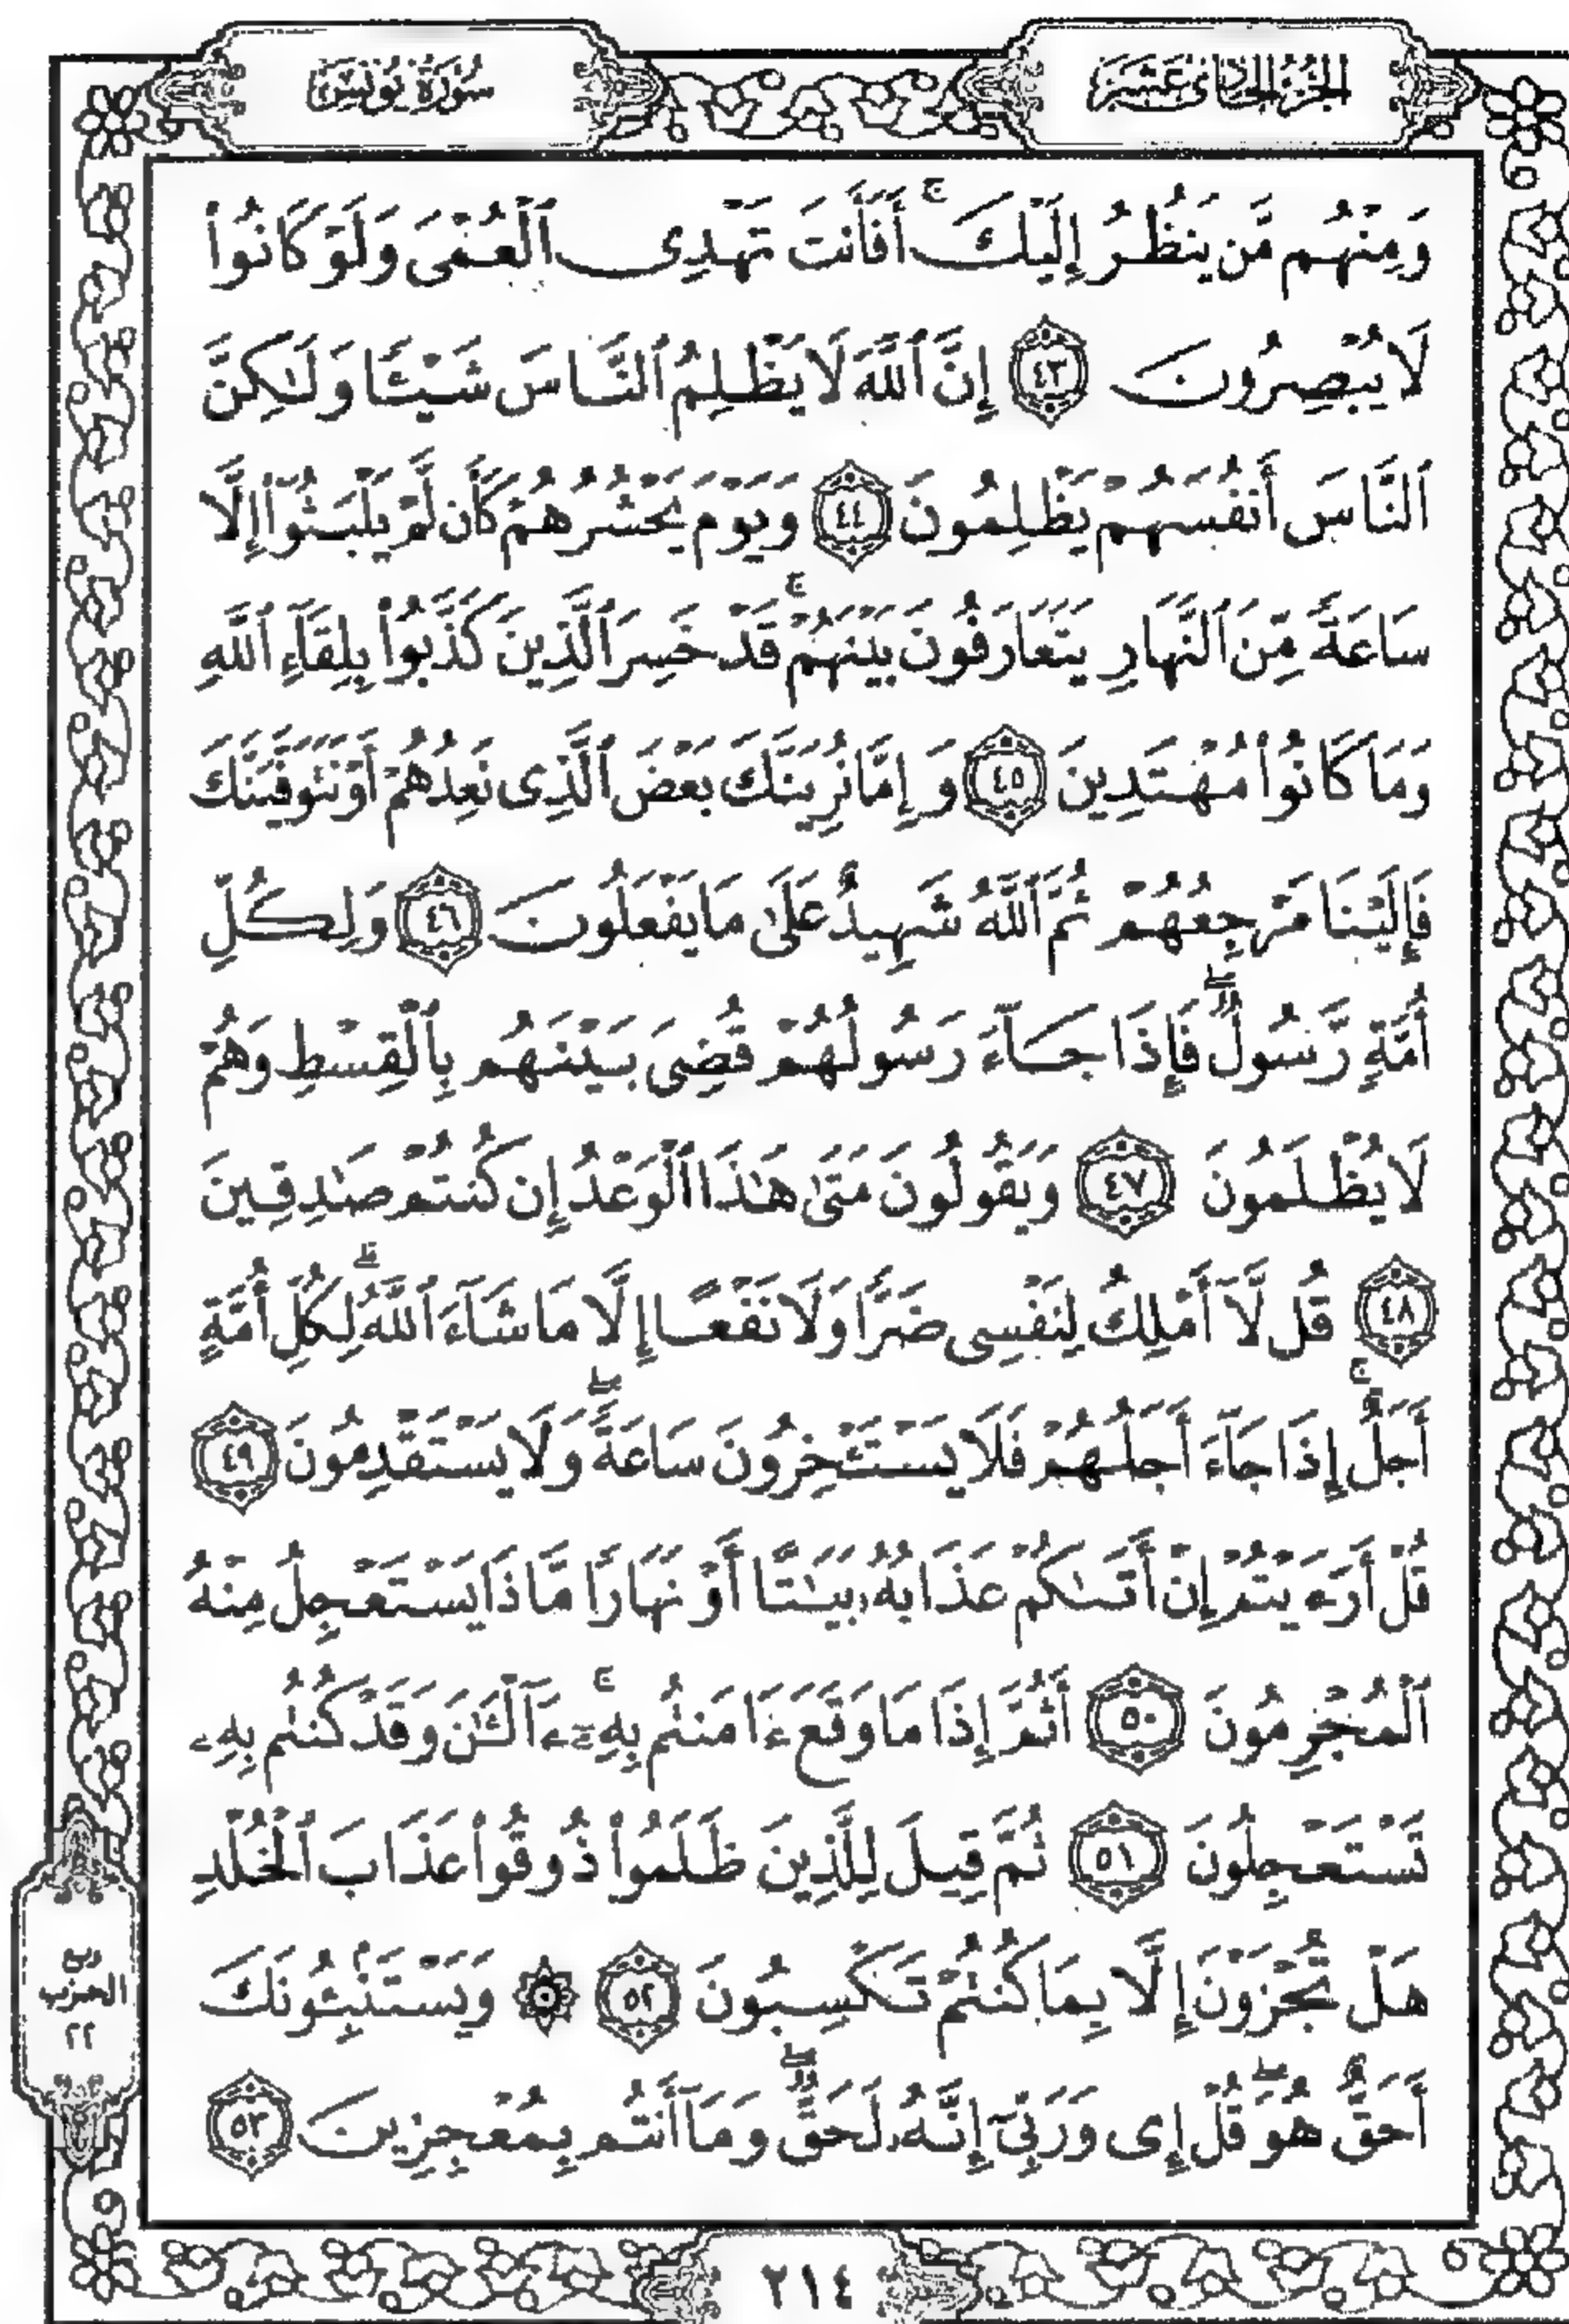 الجزء الحادى عشر
سورة يونس
وَمِنْهُم مَّن يَنظُرُ إِلَيْكَ ۚ أَفَأَنتَ تَهْدِى ٱلْعُمْىَ وَلَوْ كَانُوا۟
لَا يُبْصِرُونَ ٤٣ إِنَّ ٱللَّهَ لَا يَظْلِمُ ٱلنَّاسَ شَيْـًٔا وَلَـٰكِنَّ
ٱلنَّاسَ أَنفُسَهُمْ يَظْلِمُونَ ٤٤ وَيَوْمَ يَحْشُرُهُمْ كَأَن لَّمْ يَلْبَثُوٓا۟ إِلَّا
سَاعَةً مِّنَ ٱلنَّهَارِ يَتَعَارَفُونَ بَيْنَهُمْ ۚ قَدْ خَسِرَ ٱلَّذِينَ كَذَّبُوا۟ بِلِقَآءِ ٱللَّهِ
وَمَا كَانُوا۟ مُهْتَدِينَ ٤٥ وَإِمَّا نُرِيَنَّكَ بَعْضَ ٱلَّذِى نَعِدُهُمْ أَوْ نَتَوَفَّيَنَّكَ
فَإِلَيْنَا مَرْجِعُهُمْ ثُمَّ ٱللَّهُ شَهِيدٌ عَلَىٰ مَا يَفْعَلُونَ ٤٦ وَلِكُلِّ
أُمَّةٍ رَّسُولٌ ۖ فَإِذَا جَآءَ رَسُولُهُمْ قُضِىَ بَيْنَهُم بِٱلْقِسْطِ وَهُمْ
لَا يُظْلَمُونَ ٤٧ وَيَقُولُونَ مَتَىٰ هَـٰذَا ٱلْوَعْدُ إِن كُنتُمْ صَـٰدِقِينَ
٤٨ قُل لَّآ أَمْلِكُ لِنَفْسِى ضَرًّا وَلَا نَفْعًا إِلَّا مَا شَآءَ ٱللَّهُ ۗ لِكُلِّ أُمَّةٍ
أَجَلٌ ۚ إِذَا جَآءَ أَجَلُهُمْ فَلَا يَسْتَـْٔخِرُونَ سَاعَةً ۖ وَلَا يَسْتَقْدِمُونَ ٤٩
قُلْ أَرَءَيْتُمْ إِنْ أَتَىٰكُمْ عَذَابُهُۥ بَيَـٰتًا أَوْ نَهَارًا مَّاذَا يَسْتَعْجِلُ مِنْهُ
ٱلْمُجْرِمُونَ ٥٠ أَثُمَّ إِذَا مَا وَقَعَ ءَامَنتُم بِهِۦٓ ۚ ءَآلْـَٔـٰنَ وَقَدْ كُنتُم بِهِۦ
تَسْتَعْجِلُونَ ٥١ ثُمَّ قِيلَ لِلَّذِينَ ظَلَمُوا۟ ذُوقُوا۟ عَذَابَ ٱلْخُلْدِ
هَلْ تُجْزَوْنَ إِلَّا بِمَا كُنتُمْ تَكْسِبُونَ ٥٢ ۞ وَيَسْتَنۢبِـُٔونَكَ
أَحَقٌّ هُوَ ۖ قُلْ إِى وَرَبِّىٓ إِنَّهُۥ لَحَقٌّ ۖ وَمَآ أَنتُم بِمُعْجِزِينَ ٥٣
ربع
الحزب
٢٢
٢١٤